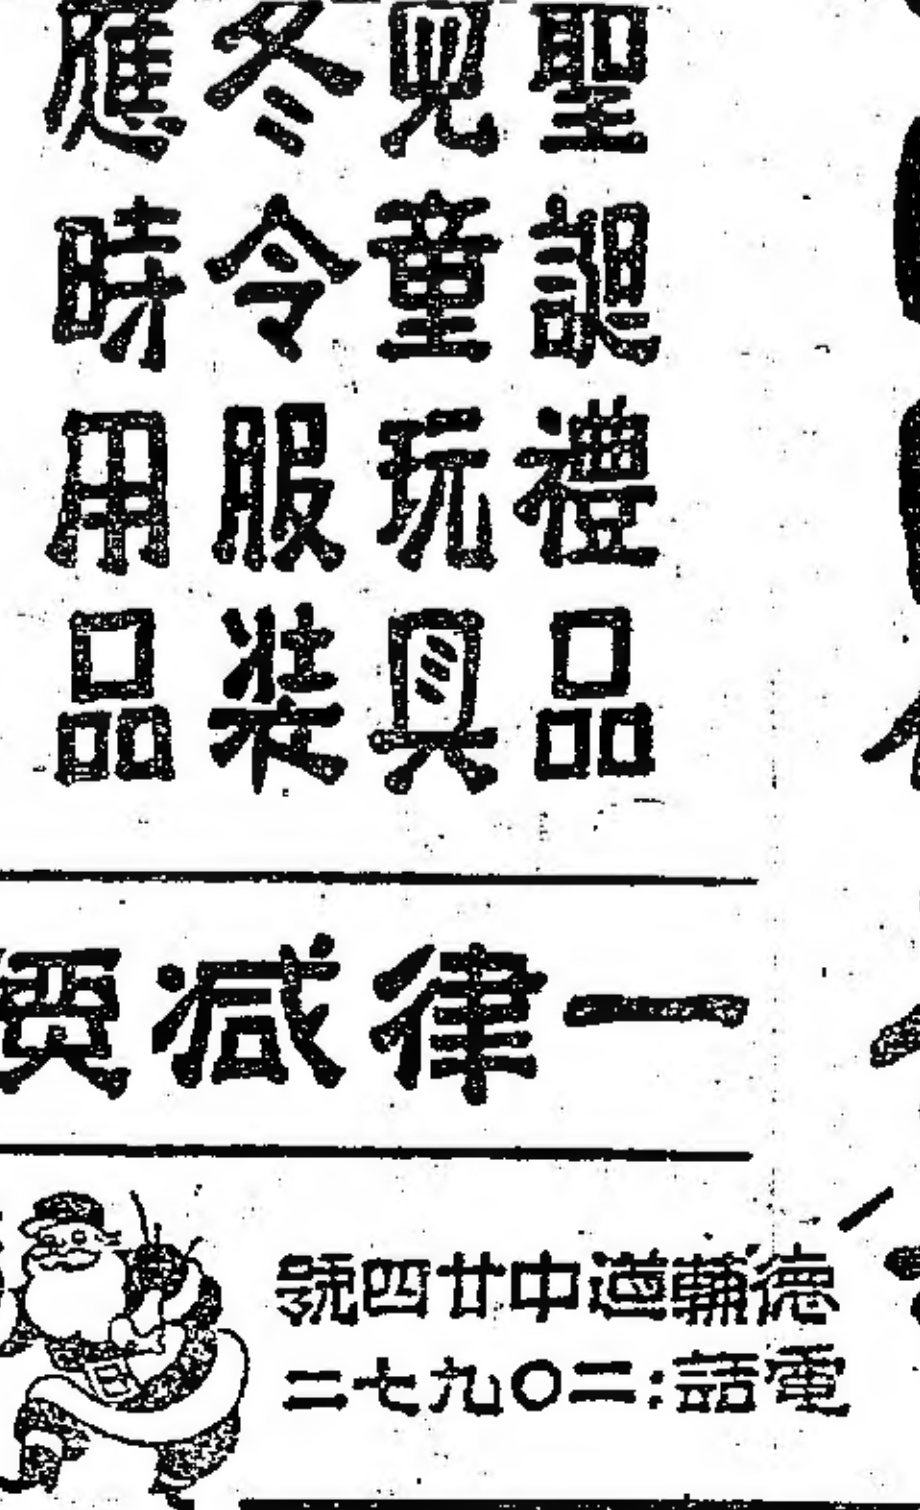 聖誕禮品
兒童玩具
冬令服裝
應時用品
一律減價
德輔道中廿四號
電話:二〇九七二